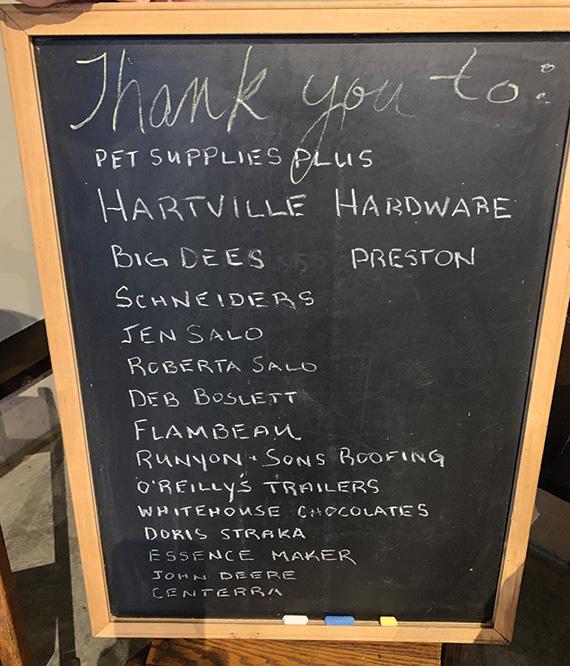 Thank you to:
PET SUPPLIES PLUS
HARTVILLE HARDWARE
BIG DEES PRESTON
SCHNEIDERS
JEN SALO
ROBERTA SALO
DEB BOSLETT
FLAMBEAU
RUNYON + SONS ROOFING
O'REILLY'S TRAILERS
WHITEHOUSE CHOCOLATES
DORIS STRAKA
ESSENCE MAKER
JOHN DEERE
CENTERRA